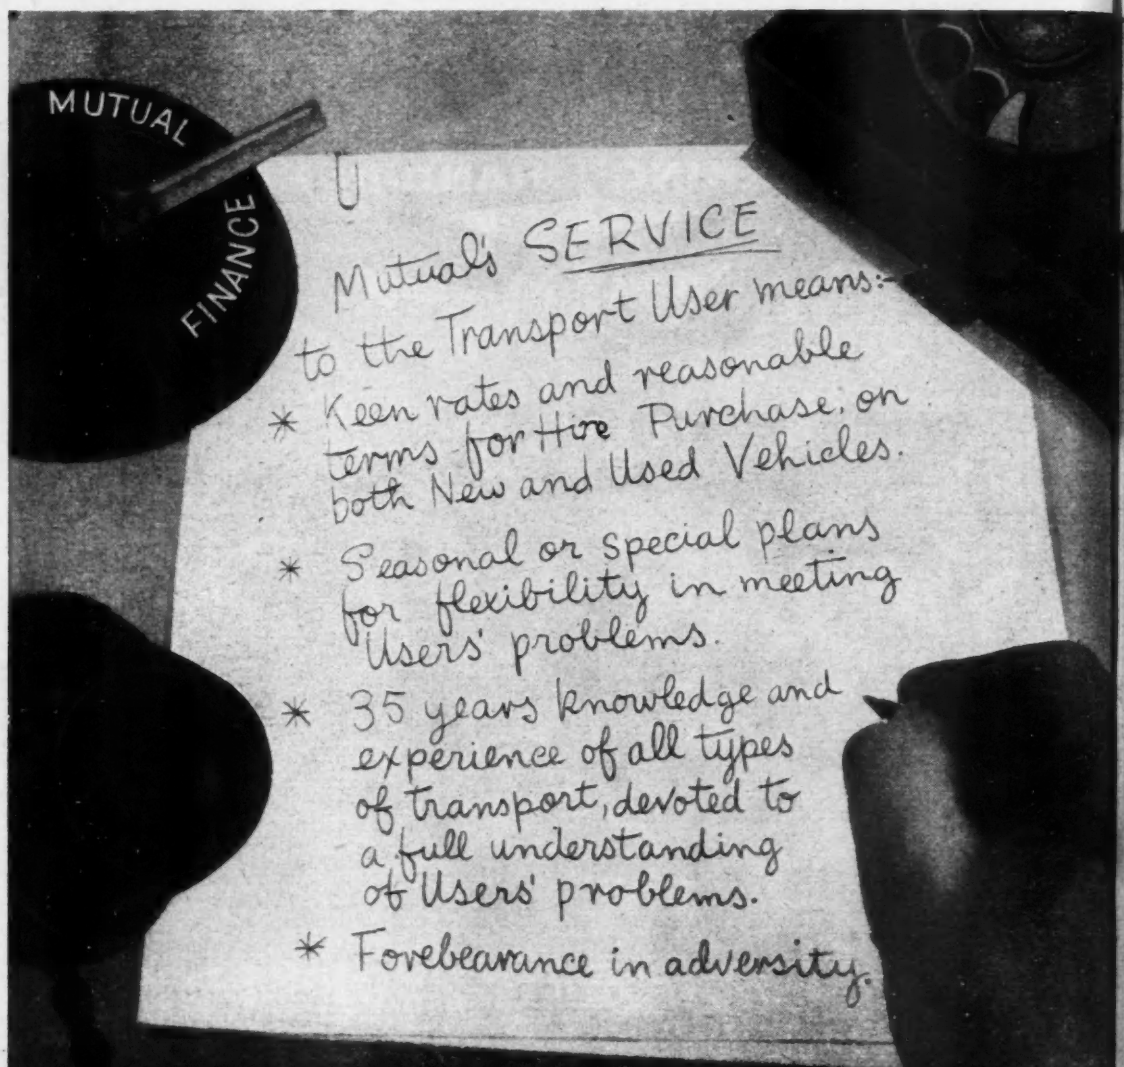 MUTUAL
FINANCE
Mutual's SERVICE
to the Transport User means:-
* Keen rates and reasonable
terms for Hire Purchase, on
both New and Used Vehicles.
* Seasonal or special plans
for flexibility in meeting
Users' problems.
* 35 years knowledge and
experience of all types
of transport, devoted to
a full understanding
of Users' problems.
* Forebearance in adversity.